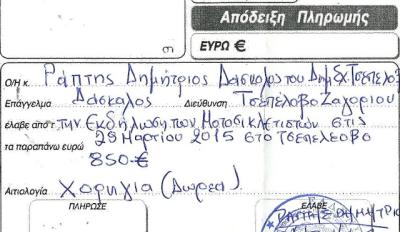 Απόδειξη Πληρωμής
ΕΥΡΩ €
Ο/Η κ. Ράπτης Δημήτριος Δάσκαλος του Δημ. Σχ. Τσεπελόβ
Επάγγελμα Δάσκαλος Διεύθυνση Τσεπέλοβο Ζαγορίου
έλαβε από τ την Εκδήλωση των Μοτοσικλετιστών στις
τα παραπάνω ευρώ 29 Μαρτίου 2015 στο Τσεπέλοβο
850 €
Αιτιολογία Χορηγία (Δωρεά).
ΠΛΗΡΩΣΕ ΕΛΑΒΕ
ΡΑΠΤΗΣ ΔΗΜΗΤΡΙΟ